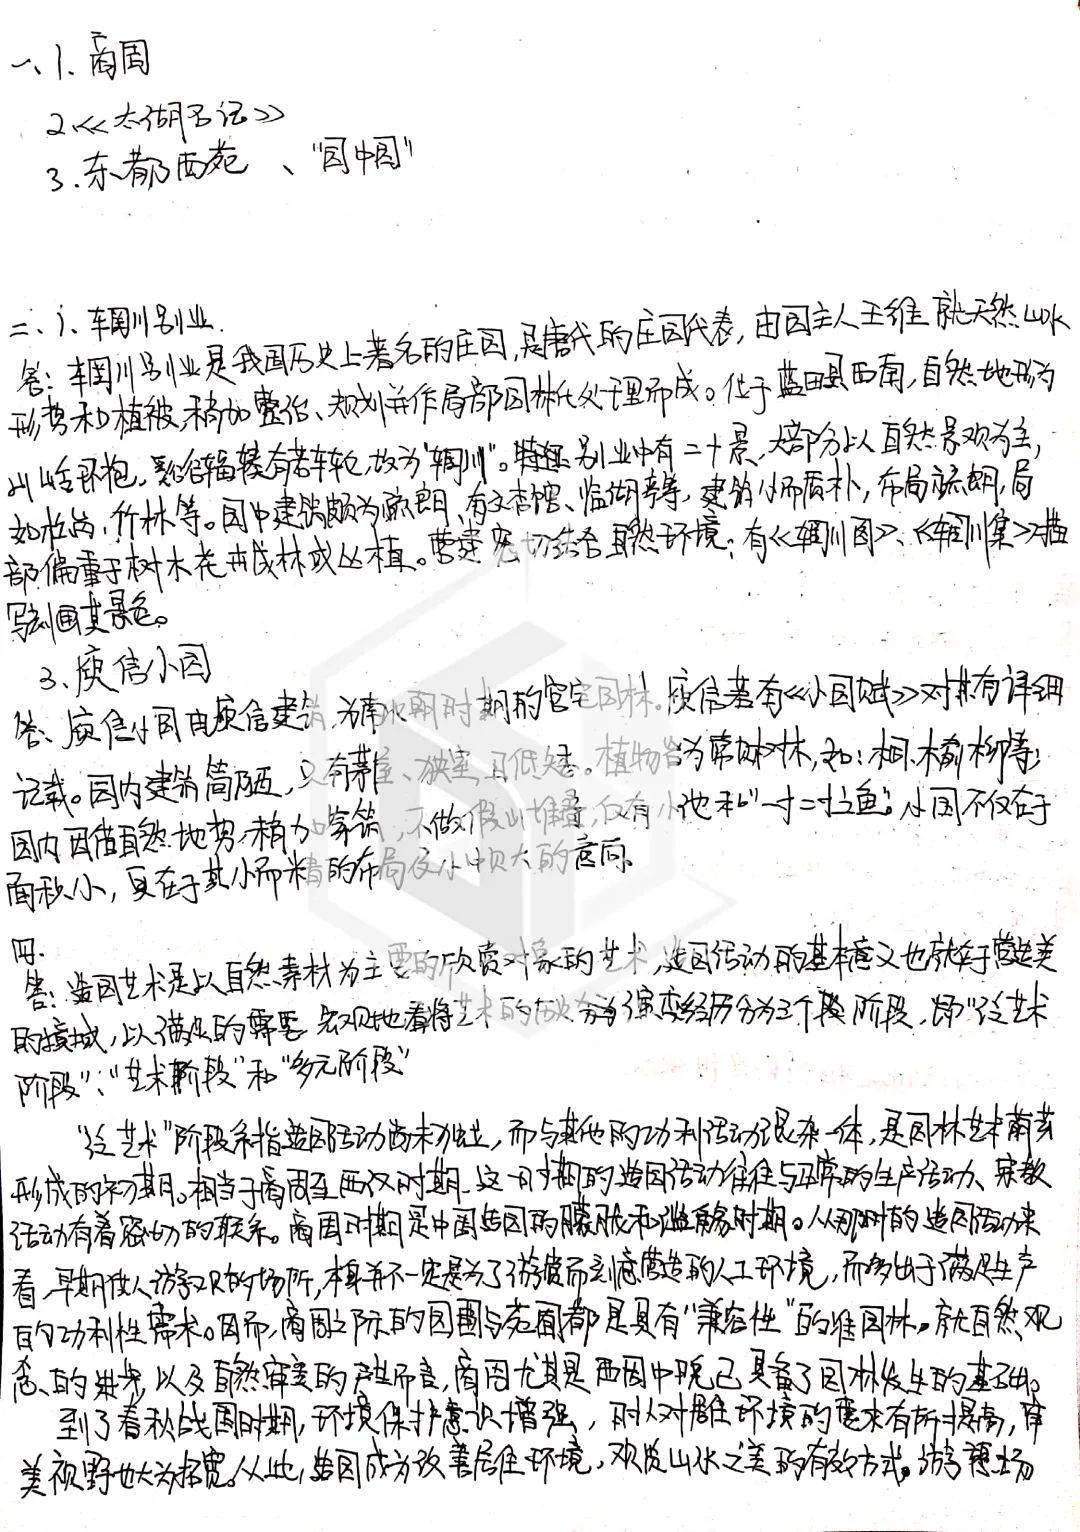 一、1. 商周
2.《太湖石记》
3. 东都西苑 、"园中园"
二、1. 辋川别业.
答：辋川别业是我国历史上著名的庄园，是唐代的庄园代表，由园主人王维就天然山水
形势和植被，稍加整治、规划并作局部园林化处理而成。位于蓝田县西南，自然地形为
山峦环抱，谿谷辐辏有若车轮，故为"辋川"。别业中有二十景，大部分以自然景观为主，
如 竹林等。园中建筑颇为疏朗，有文杏馆、临湖亭等，建筑 而质朴，布局疏朗，局
部偏重于树木花卉成林或丛植。营建 密切结合自然环境；有《辋川图》、《辋川集》描
写 其景色。
3. 庾信小园
答：庾信小园由庾信建筑，为南北朝时期的官宅园林。庾信著有《小园赋》对其有详细
记载。园内建筑简陋，只有 、 且低矮。植物皆为常见树林，如：桐、榆、柳等；
园内因借自然地势，稍加 筑，不做假山堆叠，仅有小池和"一寸二寸之鱼"；小园不仅在于
面积小，更在于其小而精的布局及小中见大的意向。
四.
答：造园艺术是以自然素材为主要的欣赏对象的艺术，造园活动的基本意义也就在于营造美
的境域，以满足 的需要。宏观地看将艺术的 演变经历分为三个 阶段，即"泛艺术
阶段"、"艺术阶段"和"多元阶段"
"泛艺术"阶段系指造园活动尚未独立，而与其他的功利活动混杂一体，是园林艺术萌芽
形成的初期。相当于商周至西汉时期。这一时期的造园活动往往与正常的生产活动、宗教
活动有着密切的联系。商周时期是中国造园的朦胧和滥觞时期。从那时的造园活动来
看，早期供人游 的场所，本身并不一定是为了游赏而刻意营造的人工环境，而多出于满足生产
的功利性需求。因而，商周之际的园圃与苑囿都是具有"兼容性"的准园林。就自然观
念的进步，以及自然审美的产生而言，商周尤其是西周中晚已具备了园林发生的基础。
到了春秋战国时期，环境保护意识增强，时人对居住环境的要求有所提高，审
美视野也大为拓宽。从此，造园成为改善居住环境，观览山水之美的有效方式。游憩场